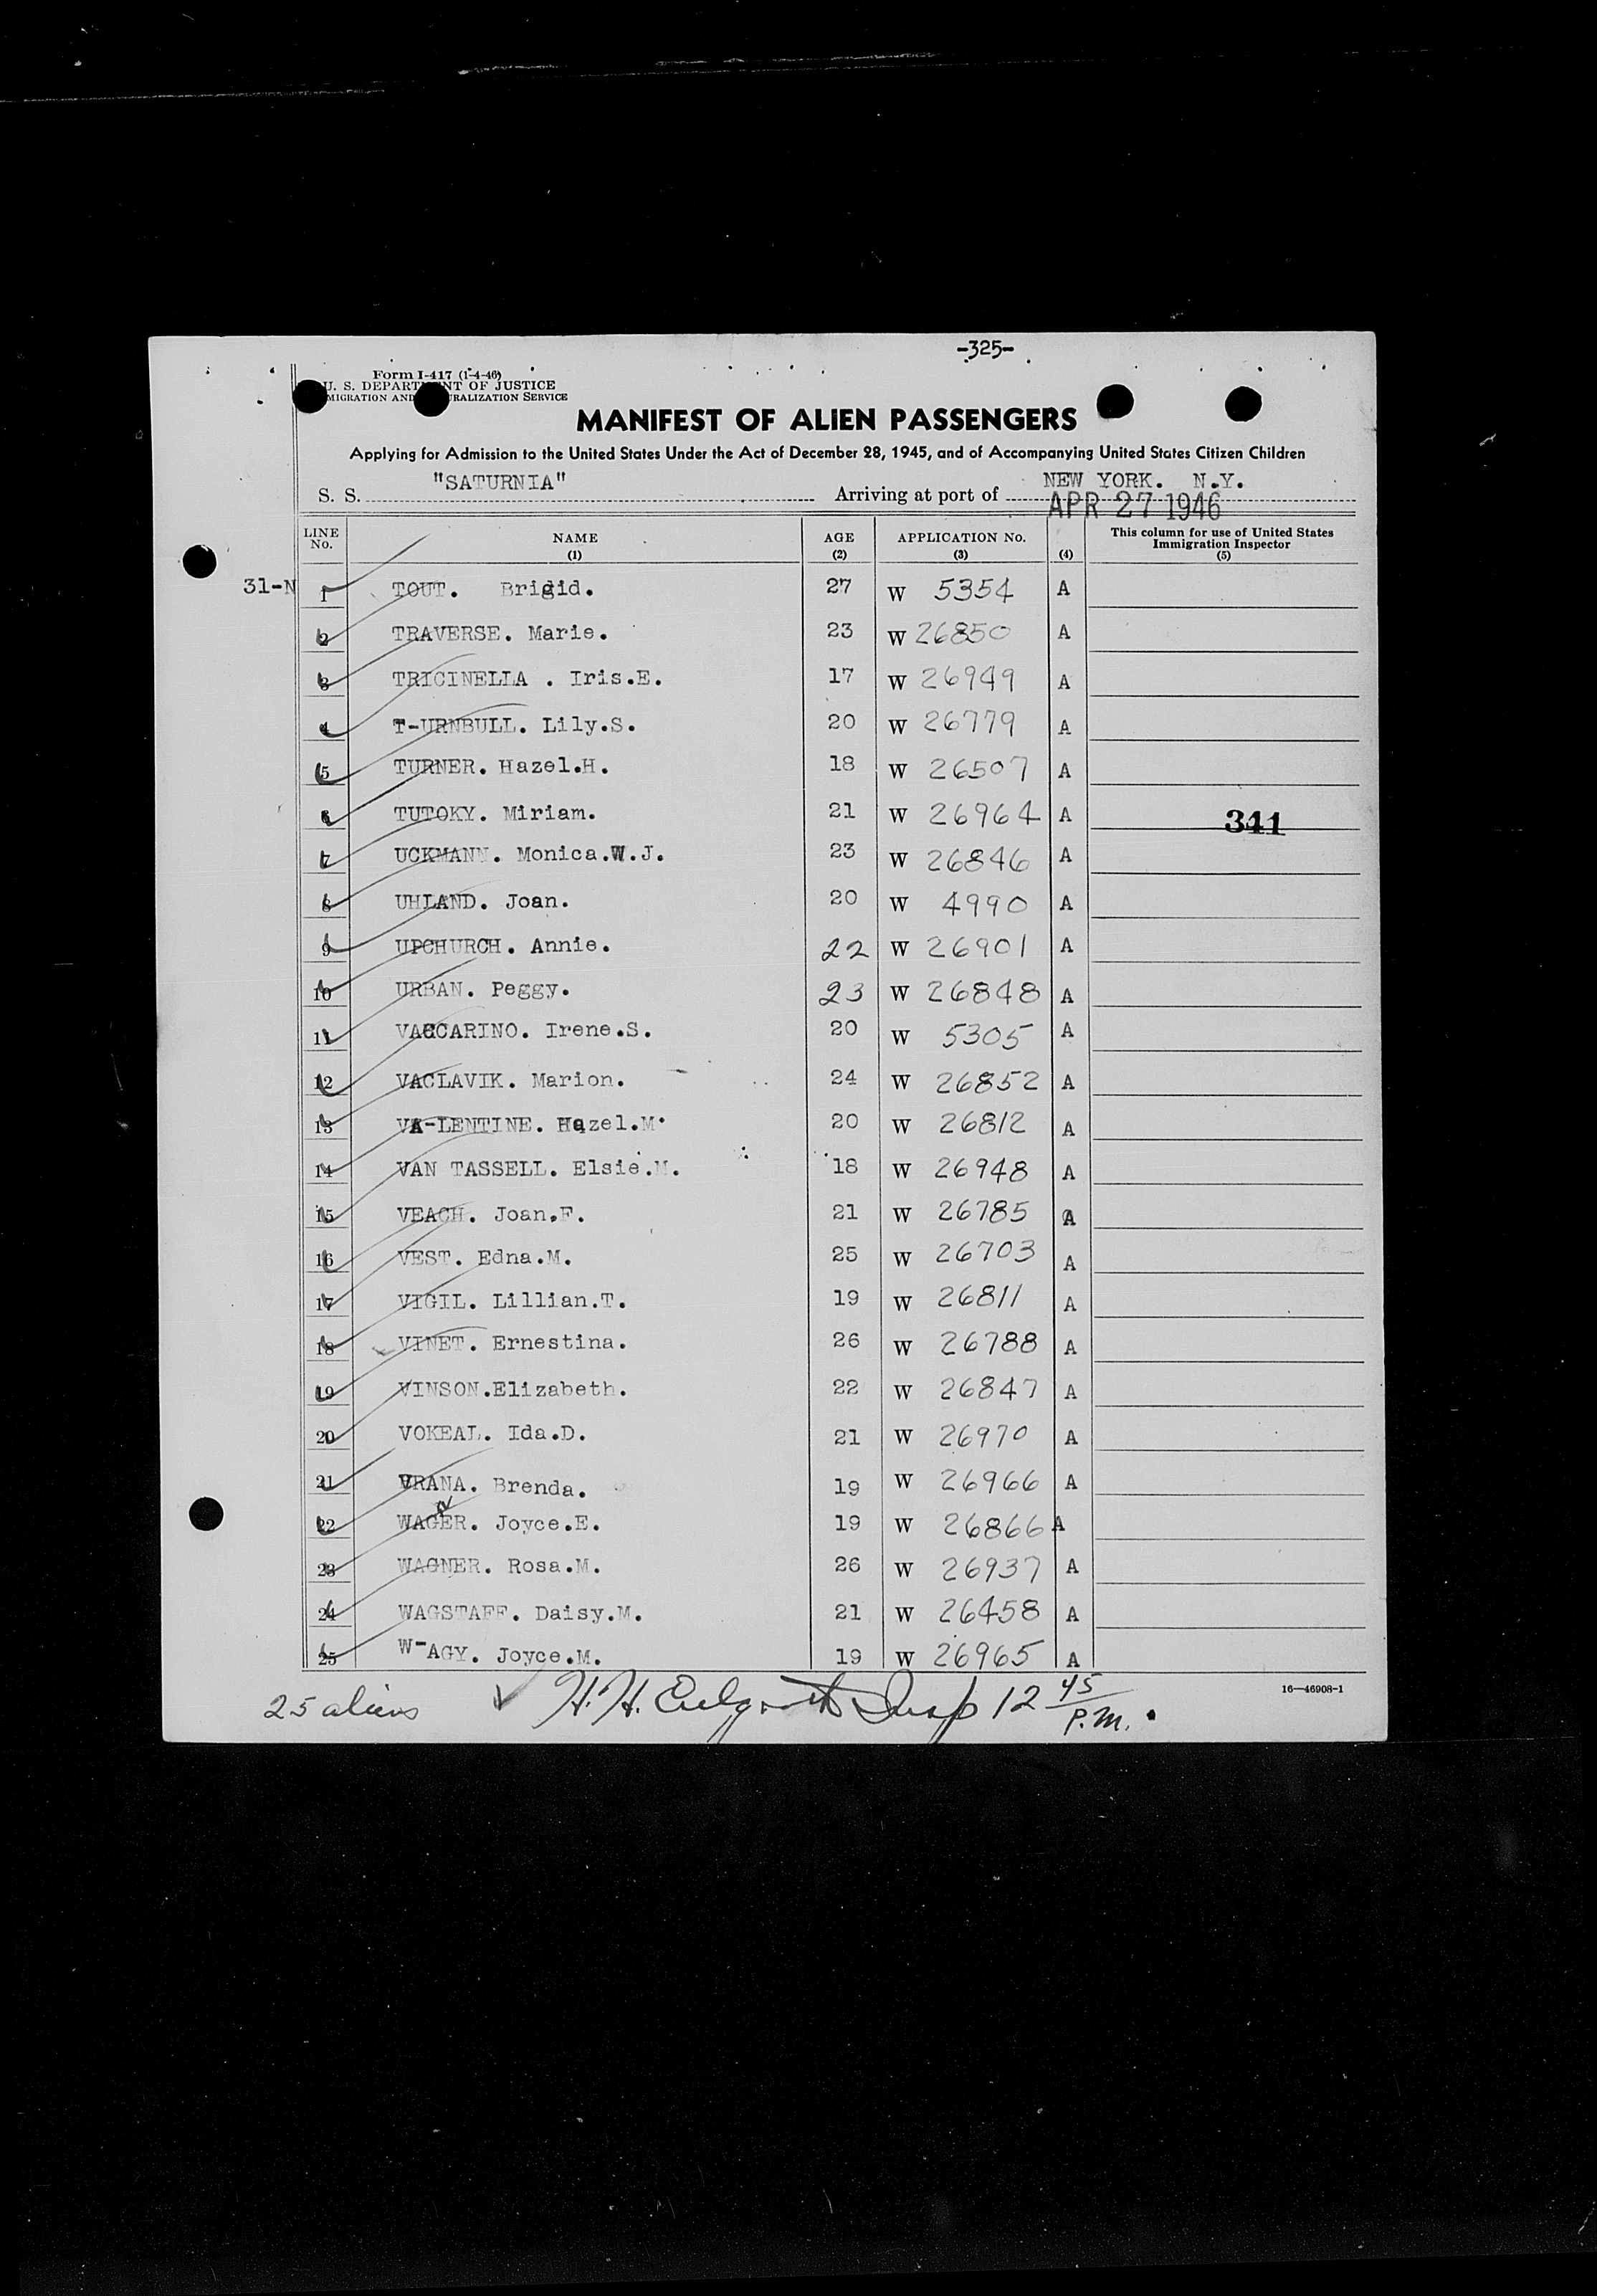 -325-
Form I-417 (1-4-46)
U. S. DEPARTMENT OF JUSTICE
MIGRATION AND RALIZATION SERVICE
MANIFEST OF ALIEN PASSENGERS
Applying for Admission to the United States Under the Act of December 28, 1945, and of Accompanying United States Citizen Children
S. S. "SATURNIA" Arriving at port of NEW YORK. N.Y.
APR 27 1946
LINE No. NAME (1) AGE (2) APPLICATION No. (3) (4) This column for use of United States Immigration Inspector (5)
31-N 1 TOUT. Brigid. 27 W 5354 A
2 TRAVERSE. Marie. 23 W 26850 A
3 TRICINELLA . Iris.E. 17 W 26949 A
4 T-URNBULL. Lily.S. 20 W 26779 A
5 TURNER. Hazel.H. 18 W 26507 A
6 TUTOKY. Miriam. 21 W 26964 A 341
7 UCKMANN. Monica.W.J. 23 W 26846 A
8 UHLAND. Joan. 20 W 4990 A
9 UPCHURCH. Annie. 22 W 26901 A
10 URBAN. Peggy. 23 W 26848 A
11 VACCARINO. Irene.S. 20 W 5305 A
12 VACLAVIK. Marion. 24 W 26852 A
13 VA-LENTINE. Hazel.M. 20 W 26812 A
14 VAN TASSELL. Elsie.M. 18 W 26948 A
15 VEACH. Joan.F. 21 W 26785 A
16 VEST. Edna.M. 25 W 26703 A
17 VIGIL. Lillian.T. 19 W 26811 A
18 VINET. Ernestina. 26 W 26788 A
19 VINSON.Elizabeth. 22 W 26847 A
20 VOKEAL. Ida.D. 21 W 26970 A
21 VRANA. Brenda. 19 W 26966 A
22 WAGER. Joyce.E. 19 W 26866 A
23 WAGNER. Rosa.M. 26 W 26937 A
24 WAGSTAFF. Daisy.M. 21 W 26458 A
25 W-AGY. Joyce.M. 19 W 26965 A
16—46908-1
25 aliens H.H. Insp 12 45 P.M.